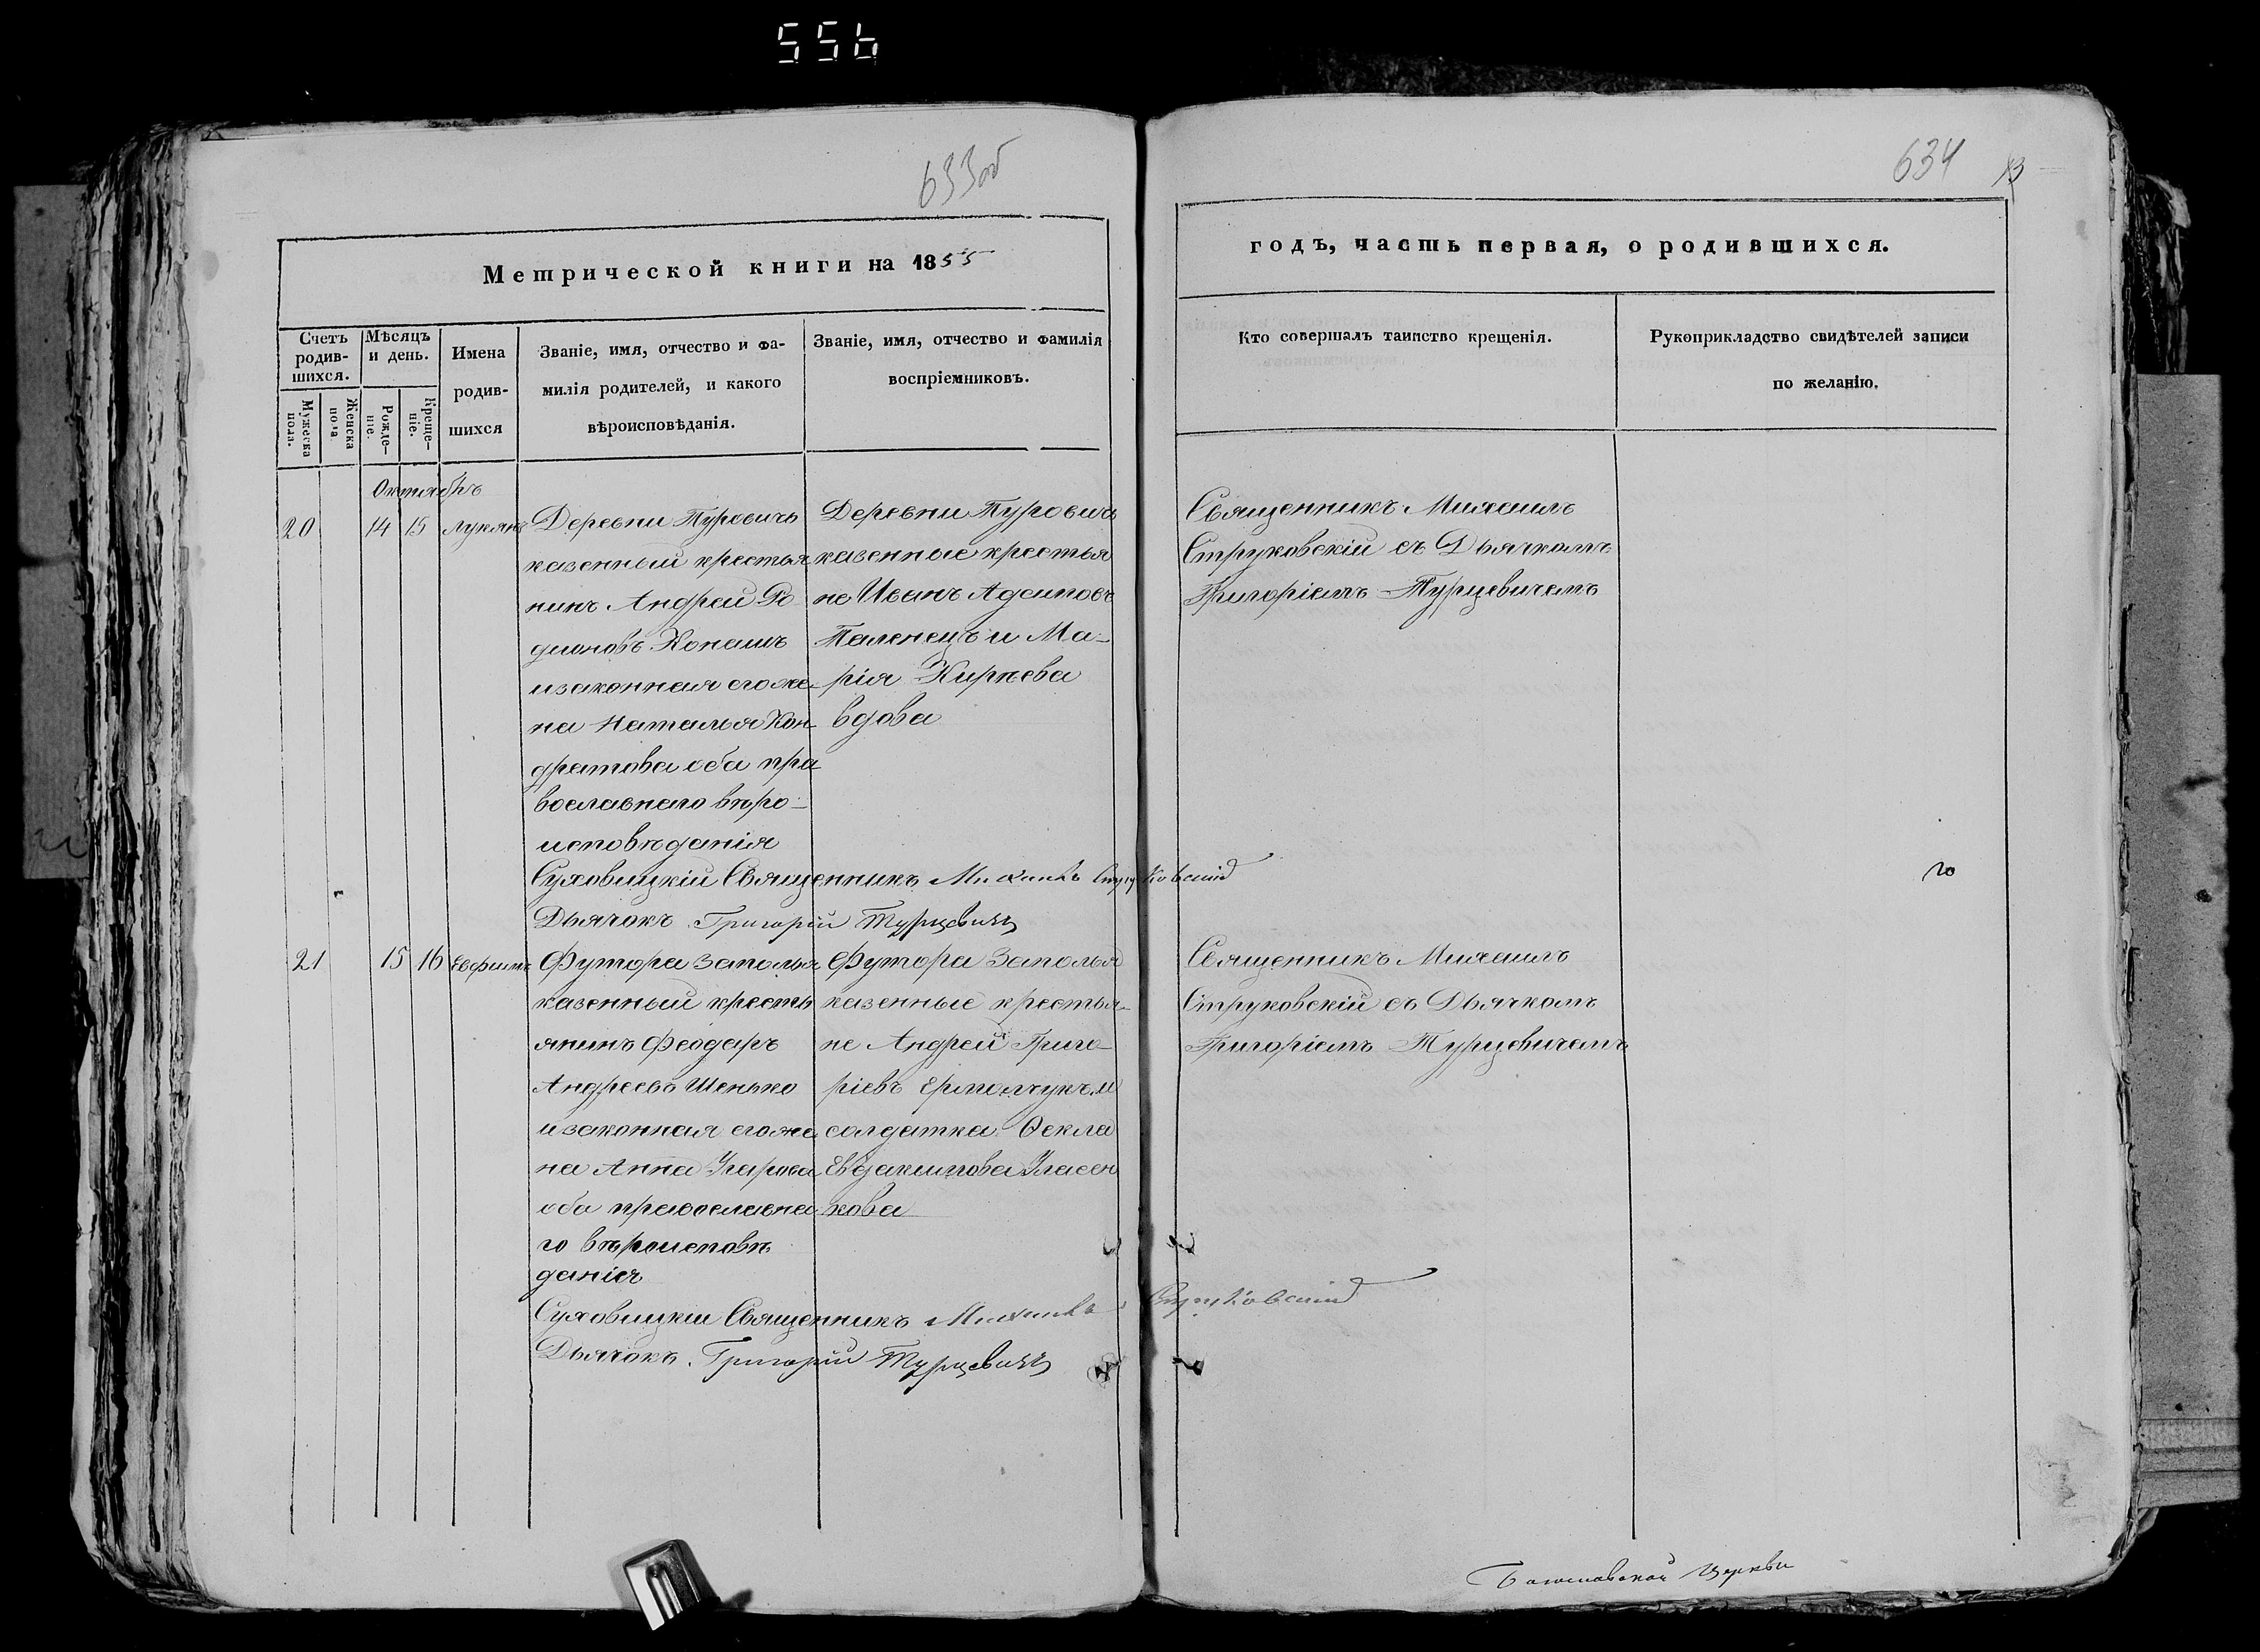 556
633об
634
13
Метрической книги на 1855
годъ, часть первая, о родившихся.
Счетъ родив-шихся.
Мѣсяцъ и день.
Имена родив-шихся
Званіе, имя, отчество и фа-
милія родителей, и какого
вѣроисповѣданія.
Званіе, имя, отчество и фамилія
воспріемниковъ.
Кто совершалъ таинство крещенія.
Рукоприкладство свидѣтелей записи
по желанію.
Мужеска пола.
Женска пола.
Рожде-ніе.
Креще-ніе.
Октябрь
20 14 15 Лукянъ
Деревни Туровичъ
казенный крестья
нинъ Андрей Ро
дионовъ Конашъ
и законная его же-
на Наталья Кон-
дратова оба пра
вославнаго вѣро-
исповѣданія
Деревни Туровичъ
казенные крестья
не Иванъ
и Ма-
рія Кирѣева
вдова
Священникъ Михаилъ
Струковскій съ Дьячкомъ
Григоріемъ Турцевичемъ
Суховицкій Священникъ Михаилъ Струковскій
Дьячокъ Григорій Турцевичъ
21 15 16
Футора Заполья
казенный кресть
янинъ Феодаръ
Андреевъ Шенько
и законная его же
на Анна
оба православна
го вѣроисповѣ
данія
Футора Заполья
казенные крестья-
не Андрей Григо-
ріевъ Ермолчукъ и
солдатка Ѳекла
Евдакимова Уласен
кова
Священникъ Михаилъ
Струковскій съ Дьячкомъ
Григоріемъ Турцевичемъ
Суховицкій Священникъ Михаилъ Струковскій
Дьячокъ Григорій Турцевичъ
го
Церкви